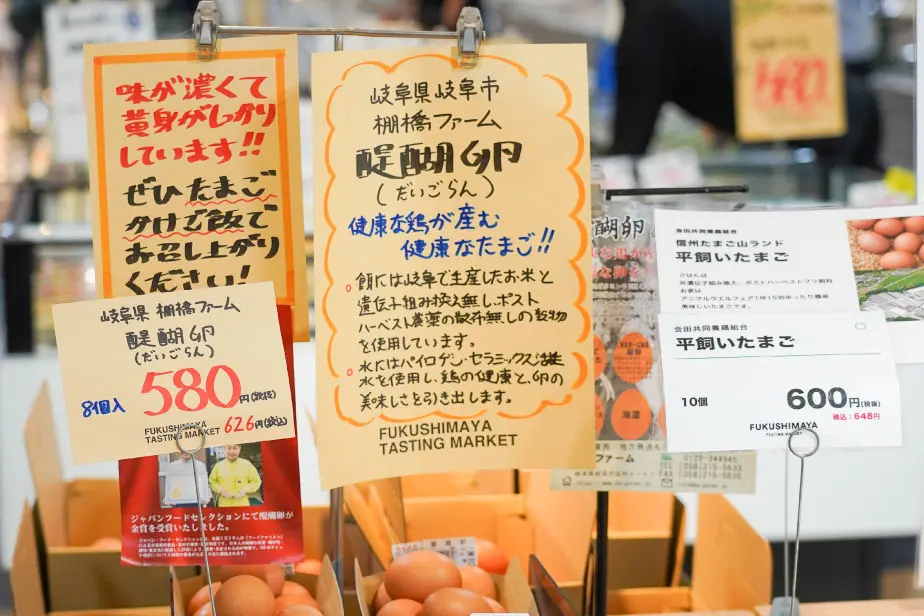 味が濃くて
黄身がしっかり
しています!!
ぜひたまご
かけご飯で
お召し上がり
ください!
岐阜県 棚橋ファーム
醍醐卵
(だいごらん)
8個入
580円(税抜)
626円(税込)
FUKUSHIMAYA
TASTING MARKET
ジャパンフードセレクションにて醍醐卵が
金賞を受賞いたしました。
岐阜県岐阜市
棚橋ファーム
醍醐卵
(だいごらん)
健康な鶏が産む
健康なたまご!!
○餌には岐阜で生産したお米と
遺伝子組み換え無し、ポスト
ハーベスト農薬の散布無しの穀物
を使用しています。
○水にはパイロゲン・セラミックス活性
水を使用し、鶏の健康と、卵の
美味しさを引き出します。
FUKUSHIMAYA
TASTING MARKET
醐卵
ファーム
会田共同養鶏組合
信州たまご山ランド
平飼いたまご
ごはんは
非遺伝子組み換え、ポストハーベストフリー飼料
お家は
美味しいたまごです。
会田共同養鶏組合
平飼いたまご
10個
600円(税抜)
税込:648円
FUKUSHIMAYA
TASTING MARKET